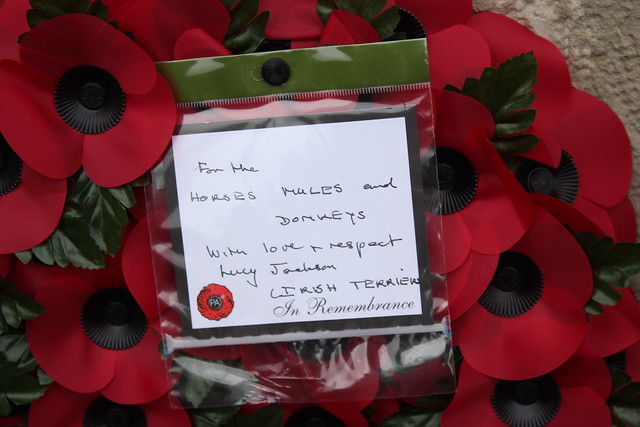 For the
HORSES MULES and
DONKEYS
With love + respect
Lucy Jackson
IRISH TERRIER
PA
In Remembrance